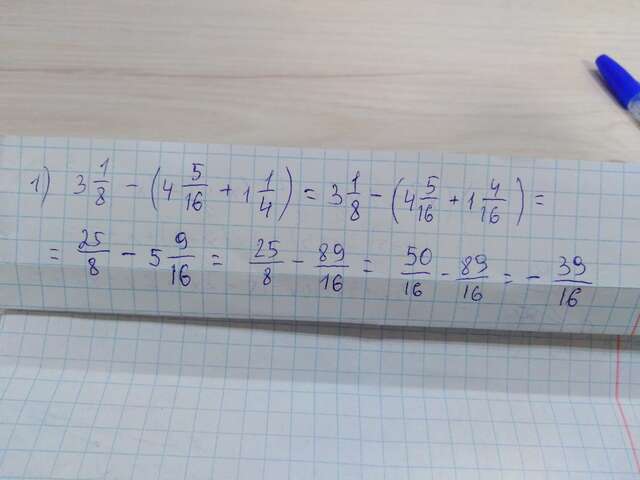 1) 3 1/8 - (4 5/16 + 1 1/4) = 3 1/8 - (4 5/16 + 1 4/16) =
= 25/8 - 5 9/16 = 25/8 - 89/16 = 50/16 - 89/16 = - 39/16